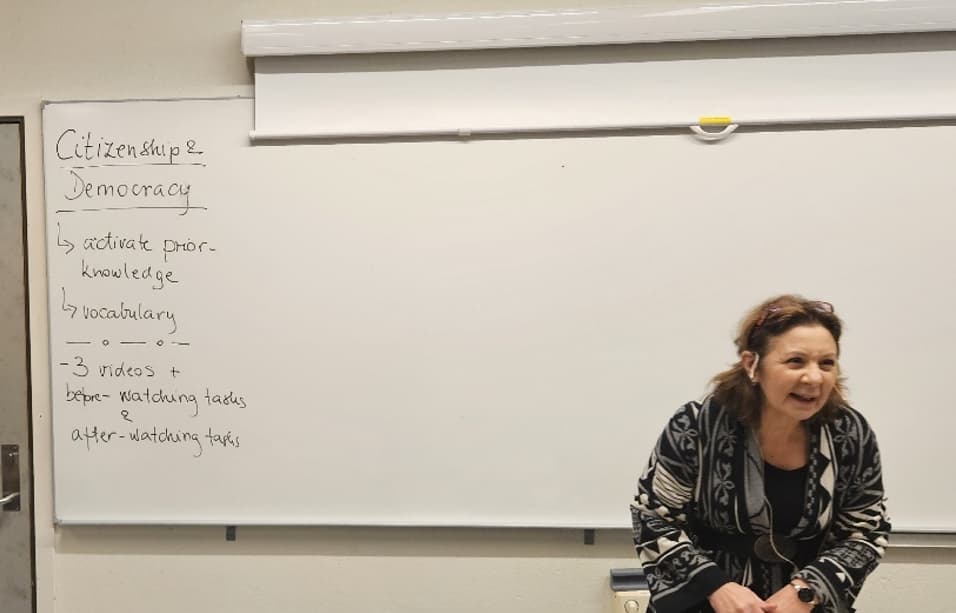 Citizenship &
Democracy
↳ activate prior-
knowledge
↳ vocabulary
- 3 videos +
before-watching tasks
&
after-watching tasks